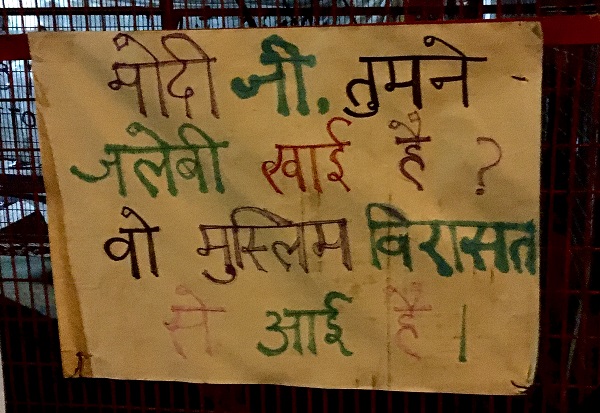 मोदी जी. तुमने
जलेबी खाई है ?
वो मुस्लिम विरासत
से आई है।